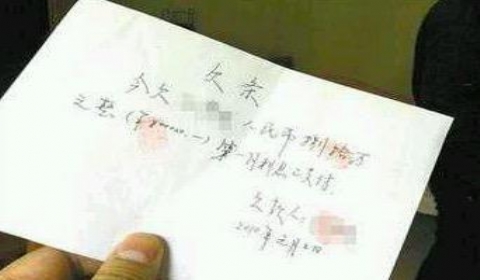 欠条
今欠 人民币捌拾万
元整（¥800000.—）第一月利息已支付.
欠款人:
2010年元月